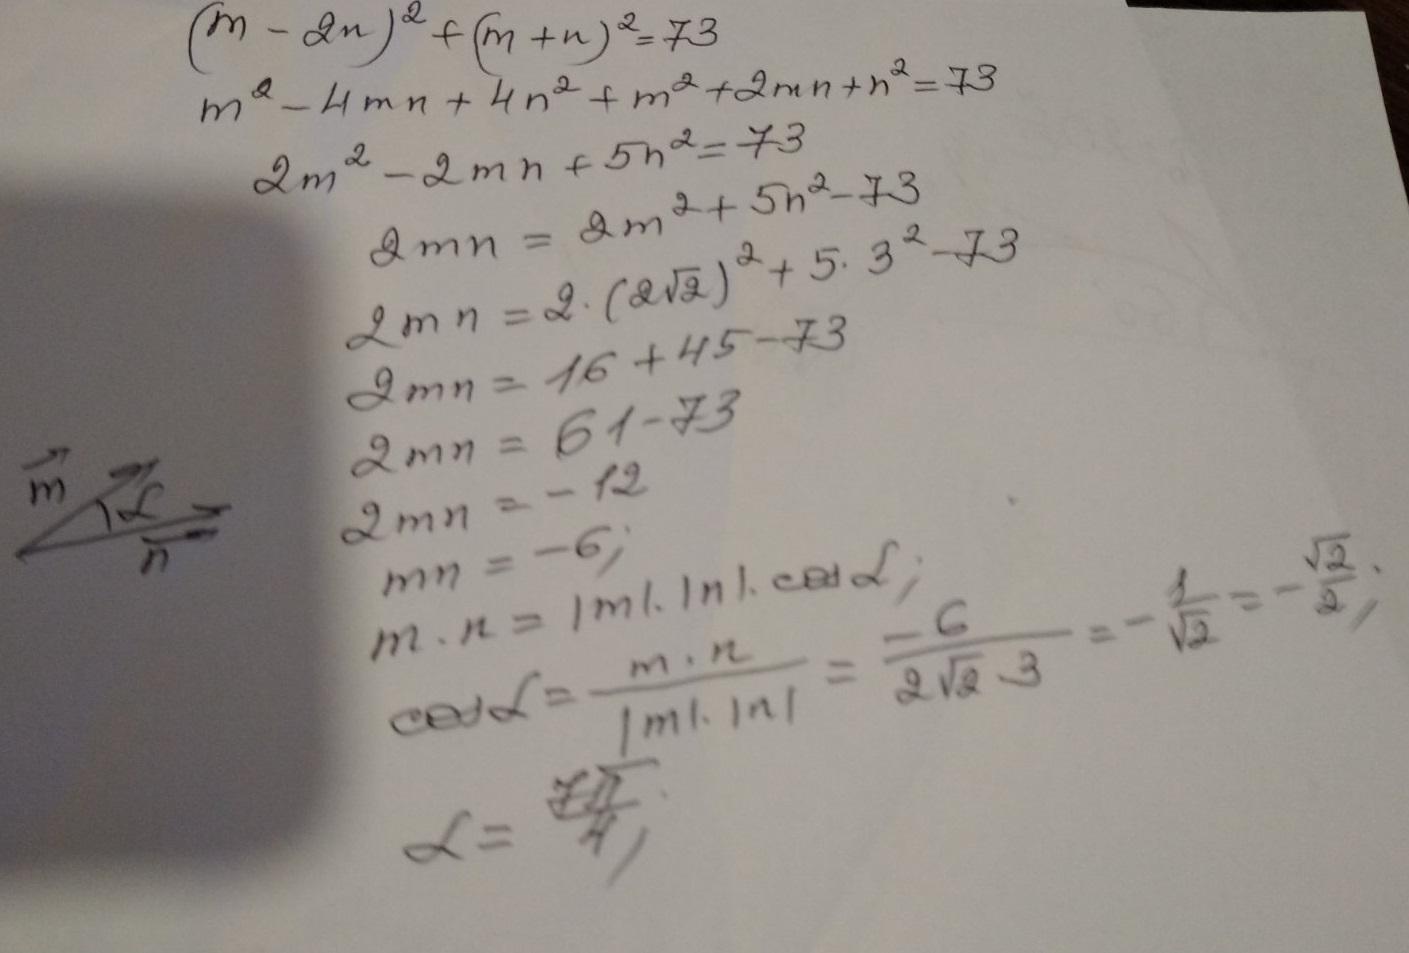 (m - 2n)² + (m + n)² = 73
m² - 4mn + 4n² + m² + 2mn + n² = 73
2m² - 2mn + 5n² = 73
2mn = 2m² + 5n² - 73
2mn = 2·(2√2)² + 5·3² - 73
2mn = 16 + 45 - 73
2mn = 61 - 73
2mn = -12
mn = -6;
m·n = |m|·|n|·cos α;
cos α = m·n / |m|·|n| = -6 / 2√2·3 = -1/√2 = -√2/2;
α = 7π/4;
m⃗
α
n⃗